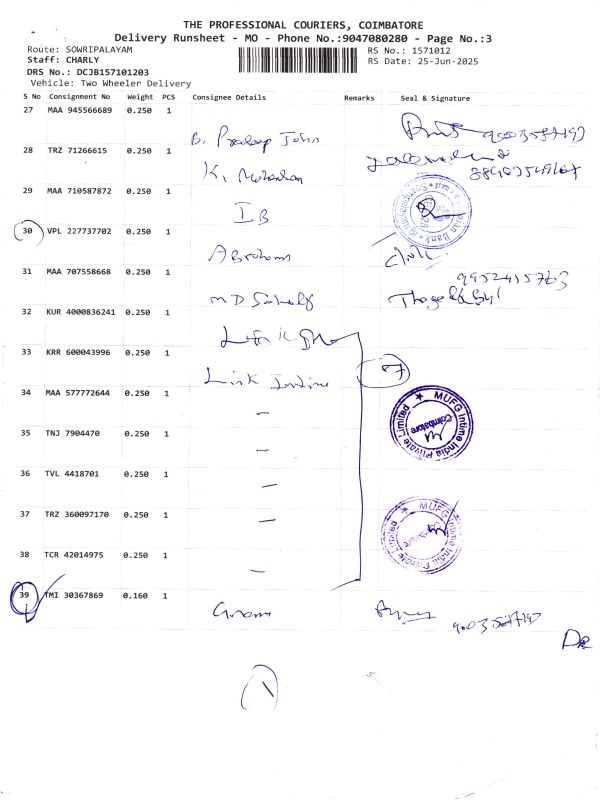 THE PROFESSIONAL COURIERS, COIMBATORE
Delivery Runsheet - MO - Phone No.:9047080280 - Page No.:3
Route: SOWRIPALAYAM
RS No.: 1571012
Staff: CHARLY
RS Date: 25-Jun-2025
DRS No.: DCJB157101203
Vehicle: Two Wheeler Delivery
S No Consignment No Weight PCS Consignee Details Remarks Seal & Signature
27 MAA 945566689 0.250 1
B. Pradeep John
28 TRZ 71266615 0.250 1
K.
29 MAA 710587872 0.250 1
IB
30 VPL 227737702 0.250 1
Abraham
31 MAA 707558668 0.250 1
9952415763
MD
32 KUR 4000836241 0.250 1
33 KRR 600043996 0.250 1
Link Intime
34 MAA 577772644 0.250 1
MUFG Intime India Private Limited
Coimbatore
35 TNJ 7904470 0.250 1
36 TVL 4418701 0.250 1
37 TRZ 360097170 0.250 1
MUFG Intime India Private Limited
38 TCR 42014975 0.250 1
39 TMI 30367869 0.160 1